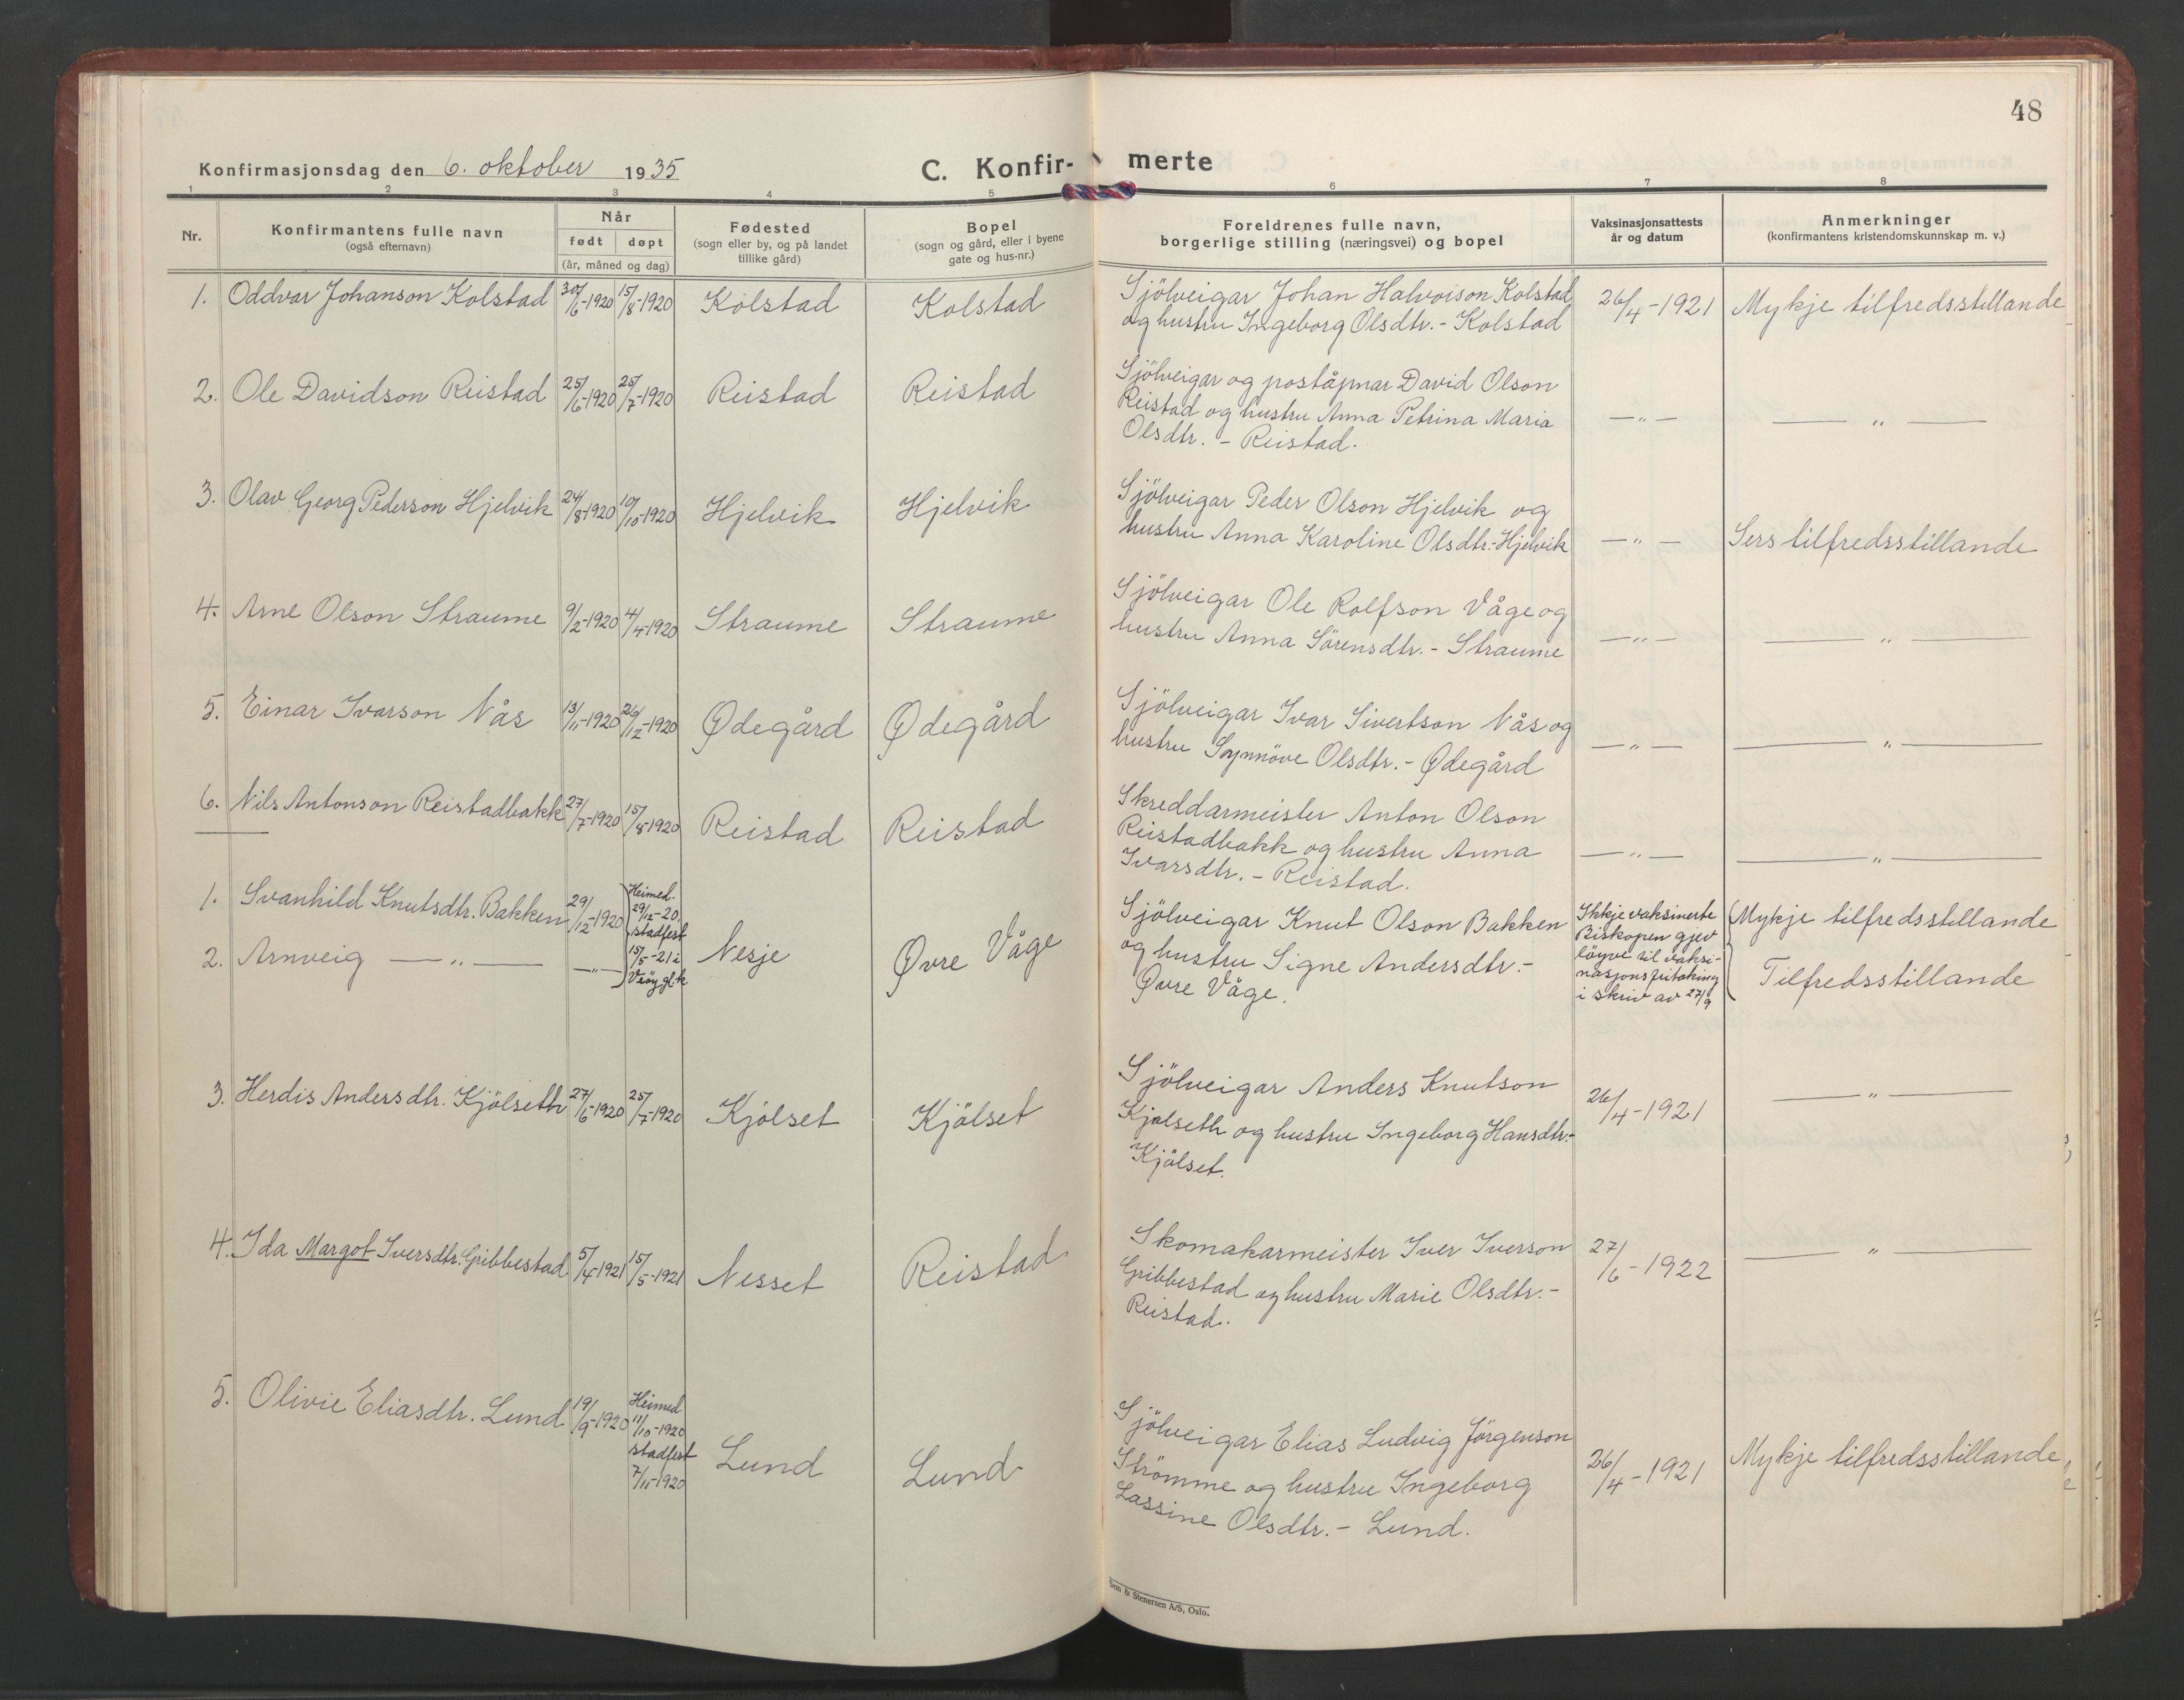 48
Konfirmasjonsdag den 6. oktober 1935
C. Konfir-merte
1 2 3 4 5 6 7 8
Nr.
Konfirmantens fulle navn
(også efternavn)
Når
født døpt
(år, måned og dag)
Fødested
(sogn eller by, og på landet
tillike gård)
Bopel
(sogn og gård, eller i byene
gate og hus-nr.)
Foreldrenes fulle navn,
borgerlige stilling (næringsvei) og bopel
Vaksinasjonsattests
år og datum
Anmerkninger
(konfirmantens kristendomskunnskap m. v.)
1. Oddvar Johanson Kolstad 30/6-1920 15/8-1920 Kolstad Kolstad
Sjölveigar Johan Halvorson Kolstad
og hustru Ingeborg Olsdtr. - Kolstad
26/4-1921 Mykje tilfredsstillande
2. Ole Davidson Reistad 25/6-1920 25/7-1920 Reistad Reistad
Sjölveigar og poståpnar David Olson
Reistad og hustru Anna Petrina Maria
Olsdtr. - Reistad.
—„— —„—
3. Olav Georg Pederson Hjelvik 24/8-1920 10/10-1920 Hjelvik Hjelvik
Sjölveigar Peder Olson Hjelvik og
hustru Anna Karoline Olsdtr.-Hjelvik
—„— Sers tilfredsstillande
4. Arne Olson Straume 9/2-1920 4/4-1920 Straume Straume
Sjölveigar Ole Rolfson Våge og
hustru Anna Sörensdtr. - Straume
—„— —„—
5. Einar Ivarson Nås 13/11-1920 26/12-1920 Ødegård Ødegård
Sjölveigar Ivar Sivertson Nås og
hustru Synnöve Olsdtr. - Ødegård
—„— —„—
6. Nils Antonson Reistadbakk 27/7-1920 15/8-1920 Reistad Reistad
Skreddarmeister Anton Olson
Reistadbakk og hustru Anna
Ivarsdtr. - Reistad.
—„— —„—
1. Svanhild Knutsdtr. Bakken 29/12-1920
2. Arnveig —„— —„—
Heimed.
29/12-20.
stadfest
15/5-21 i
Veöy gl.k.
Nesje Øvre Våge
Sjölveigar Knut Olson Bakken
og hustru Signe Andersdtr. -
Øvre Våge.
Ikkje vaksinerte
Biskopen gjev
löyve til vaksi-
nasjonsfritaking
i skriv av 27/9
Mykje tilfredsstillande
Tilfredsstillande
3. Herdis Andersdtr. Kjölseth 27/6-1920 25/7-1920 Kjölset Kjölset
Sjölveigar Anders Knutson
Kjølseth og hustru Ingeborg Hansdtr.-
Kjölset.
26/4-1921 —„—
4. Ida Margot Iversdtr. Gribbestad 5/4-1921 15/5-1921 Nesset Reistad
Skomakarmeister Iver Iverson
Gribbestad og hustru Marie Olsdtr. -
Reistad.
27/6-1922 —„—
5. Olivie Eliasdtr. Lund 19/9-1920
Heimed
11/10-1920
stadfest
7/11-1920
Lund Lund
Sjölveigar Elias Ludvig Jörgenson
Strömme og hustru Ingeborg
Lassine Olsdtr. - Lund.
26/4-1921 Mykje tilfredsstillande
Sem & Stenersen A/S, Oslo.